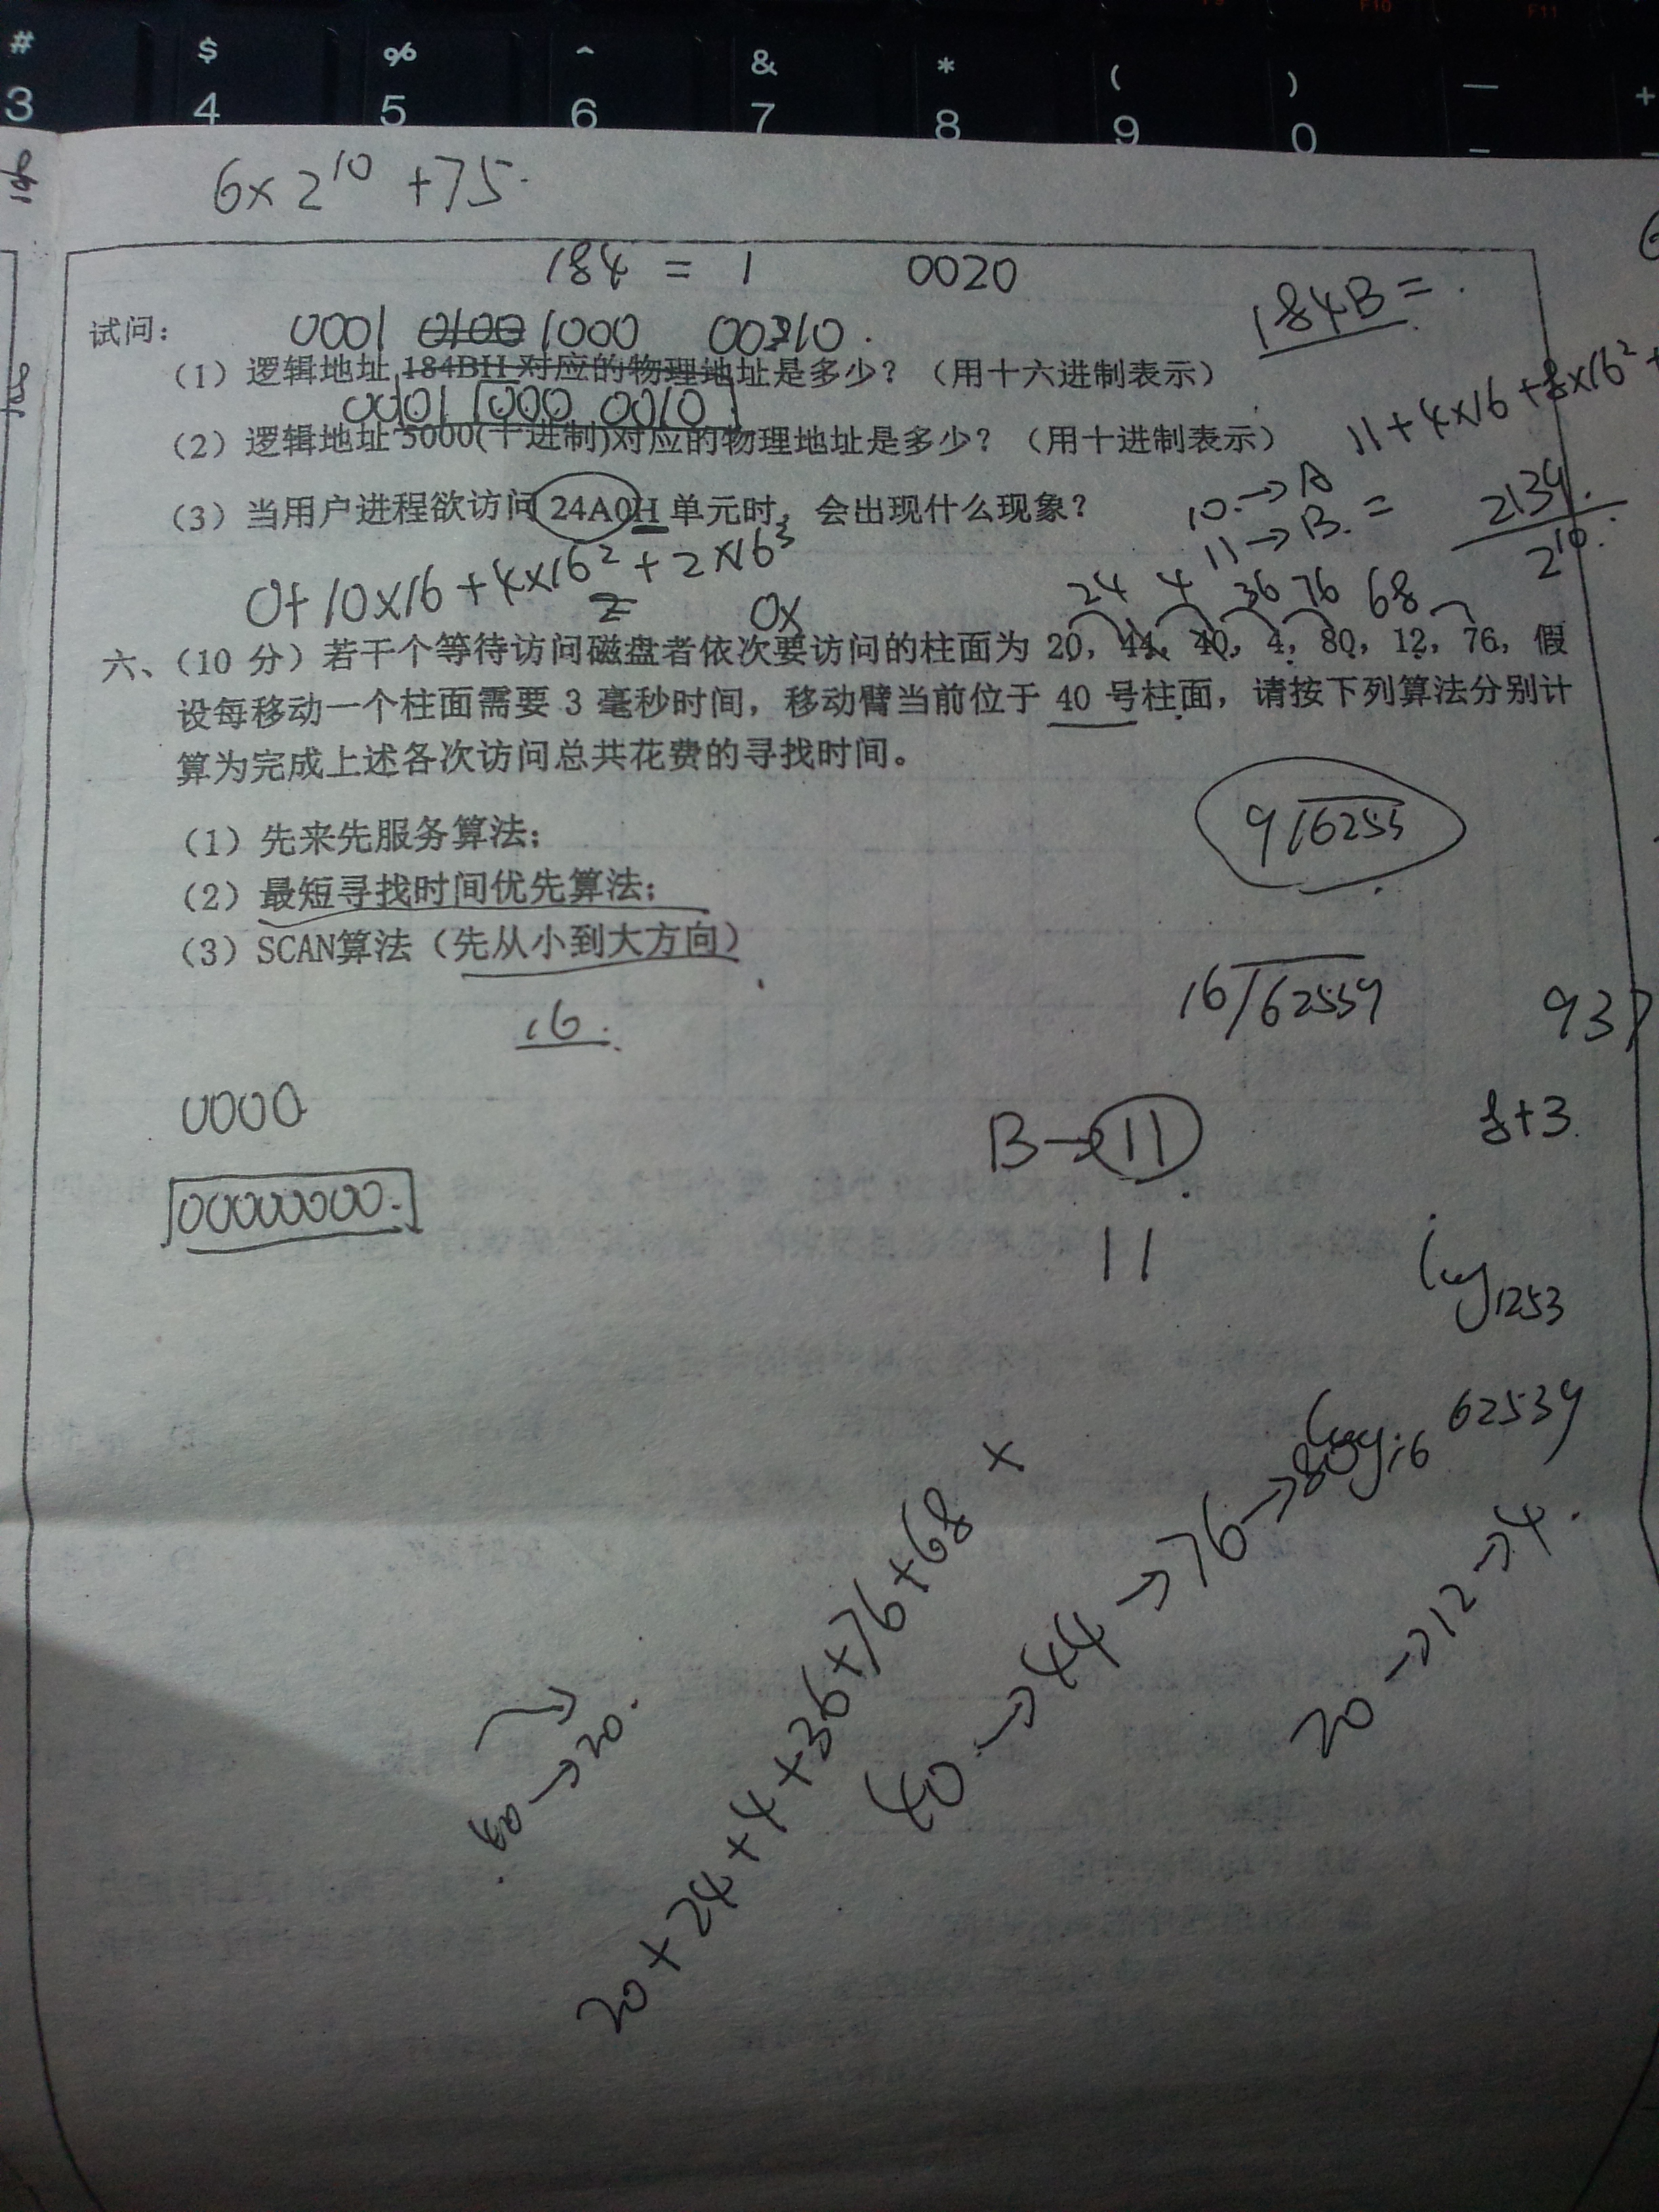 F9 F10 F11
# $ % ^ & * ( ) — +
3 4 5 6 7 8 9 0 -
6×2^10 +75.
184 = 1 0020
184B = .
试问:
0001 0100 1000 0010.
(1) 逻辑地址 184BH 对应的物理地址是多少? (用十六进制表示)
0001 1000 0010
11+4×16+8×16²+
(2) 逻辑地址 5000(十进制)对应的物理地址是多少? (用十进制表示)
(3) 当用户进程欲访问 24A0H 单元时, 会出现什么现象?
10.→A
11→B. =
2^10.
0+10×16+4×16²+2×16³
0x
24 4 36 76 68
六、(10 分) 若干个等待访问磁盘者依次要访问的柱面为 20, 44, 40, 4, 80, 12, 76, 假
设每移动一个柱面需要 3 毫秒时间, 移动臂当前位于 40 号柱面, 请按下列算法分别计
算为完成上述各次访问总共花费的寻找时间。
(1) 先来先服务算法;
(2) 最短寻找时间优先算法;
(3) SCAN算法 (先从小到大方向)
16.
937
0000
B→11
8+3
00000000.
11
log1253
log16 62539
40→44→76→80
20→12→4.
40→20.
20+24+4+36+76+68 ×